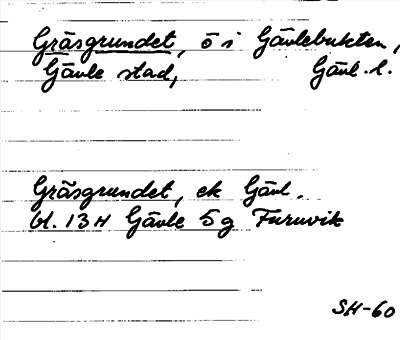 Gräsgrundet, ö i Gävlebukten,
Gävle stad, Gävl. l.
Gräsgrundet, ek Gävl.
bl. 13H Gävle 5g Furuvik
SH-60